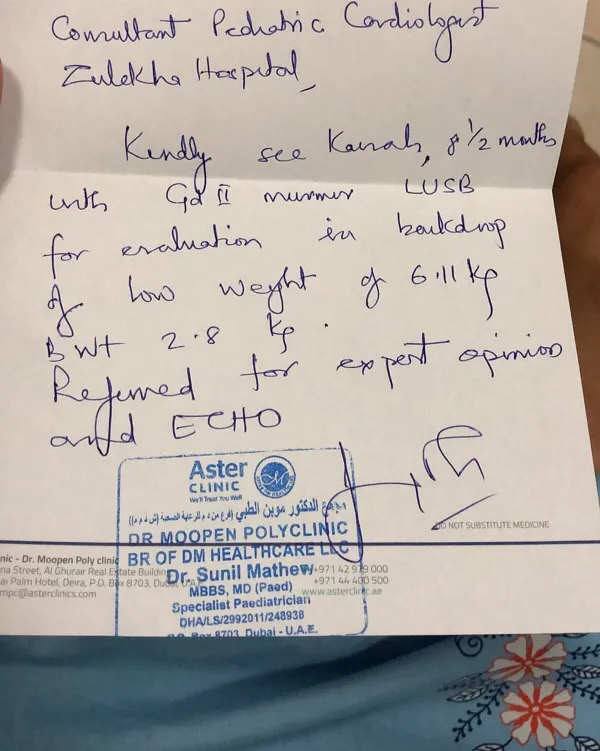 Consultant Pediatric Cardiologist
Zulekha Hospital,
Kindly see Kainah, 8 1/2 months
with Gd II murmur LUSB
for evaluation in backdrop
of low weight of 6.11 kg
B Wt 2.8 kg.
Referred for expert opinion
and ECHO
Aster
CLINIC
We'll Treat You Well
DR MOOPEN POLYCLINIC
BR OF DM HEALTHCARE LLC
Dr. Sunil Mathew
MBBS, MD (Paed)
Specialist Paediatrician
DHA/LS/2992011/248938
P.O. Box 8703, Dubai - U.A.E.
DO NOT SUBSTITUTE MEDICINE
nic - Dr. Moopen Poly clinic
na Street, Al Ghurair Real Estate Building
ai Palm Hotel, Deira, P.O. Box 8703, Dubai, U.A.E
mpc@asterclinics.com
+971 42 979 000
+971 44 400 500
www.asterclinic.ae